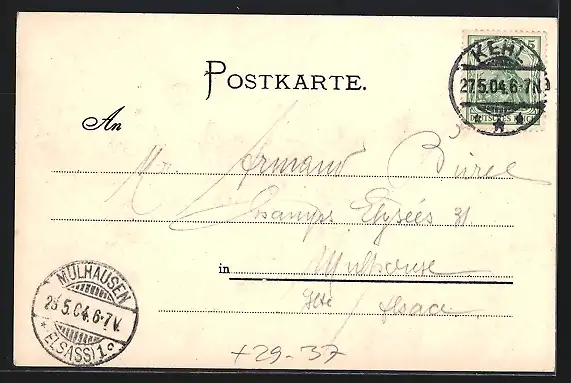 KEHL
27.5.04.6-7N.
5
DEUTSCHES REICH
POSTKARTE.
An
Mr. Armand Bürel
Champs Elysées 31
in Mulhouse
Alsace
MÜLHAUSEN
28.5.04.6-7V.
(ELSASS) 1c
+29-37